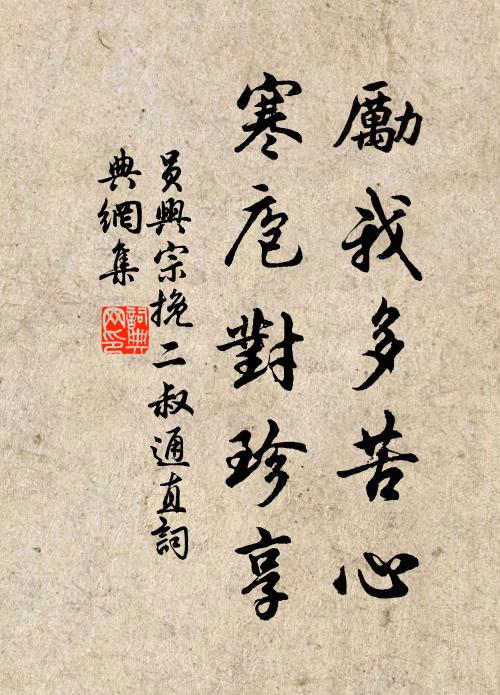 勵我多苦心
寒庖對珍享
员興宗挽二叔通直詞
典網集
詞典
网印